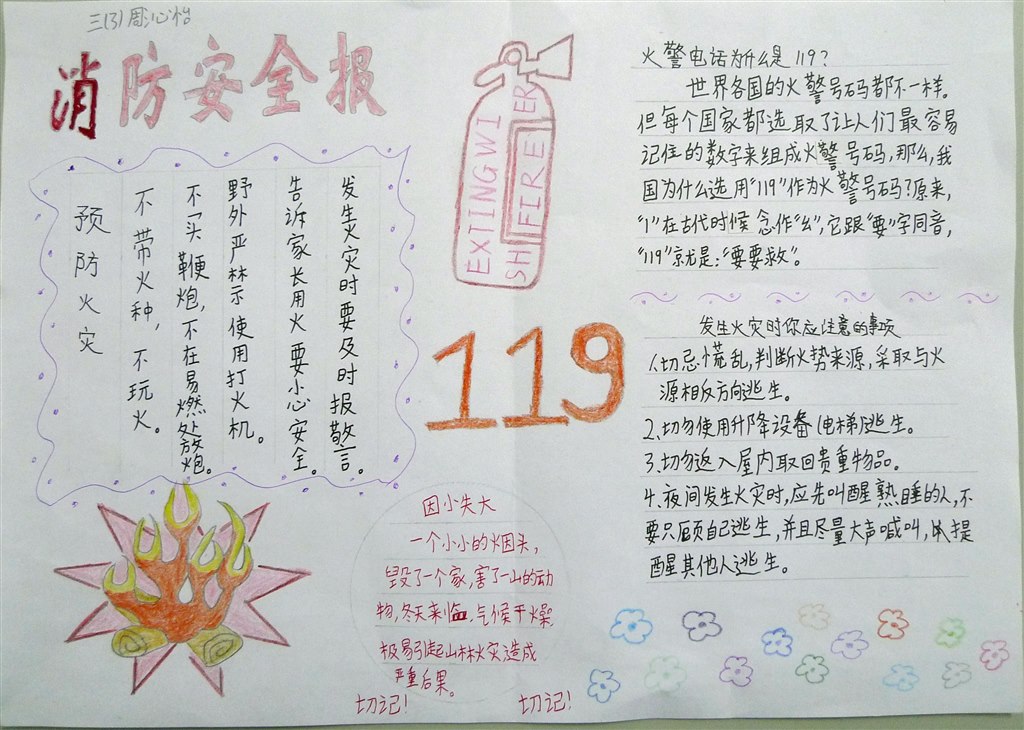 三(3)周沁怡
消防安全报
预防火灾
不带火种，不玩火。
不买鞭炮，不在易燃处放炮。
野外严禁示使用打火机。
告诉家长用火要小心安全。
发生火灾时要及时报警言。
EXTINGWI
SH FIRE ER
119
因小失大
一个小小的烟因头，
毁了一个家，害了一山的动
物，冬天来临，气候干燥
极易引起山林火灾造成
严重后果。
切记！ 切记！
火警电话为什么是119？
世界各国的火警号码都不一样。
但每个国家都选取了让人们最容易
记住的数字来组成火警号码，那么，我
国为什么选用“119”作为火警号码？原来，
“1”在古代时候念作“幺”，它跟“要”字同音，
“119”就是：“要要救”。
发生火灾时你应注意的事项
1.切忌慌乱，判断火势来源，采取与火
源相反方向逃生。
2.切勿使用升降设备(电梯)逃生。
3.切勿返入屋内取回贵重物品。
4.夜间发生火灾时，应先叫醒熟睡的人，不
要只顾自己逃生，并且尽量大声喊叫，以提
醒其他人逃生。